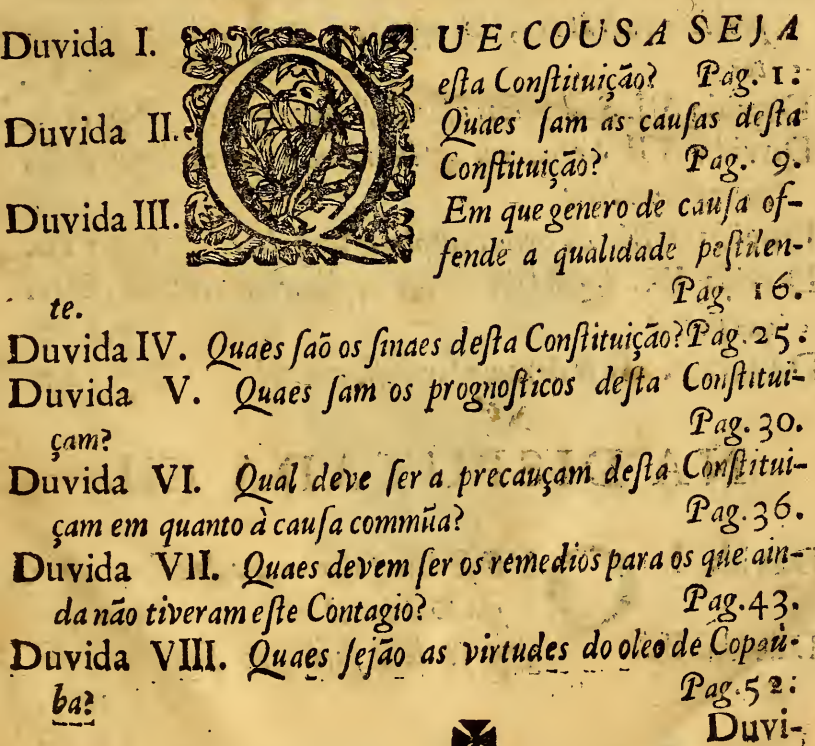 Duvida I. QUE COUSA SEJA
eſta Conſtituição? Pag. 1.
Duvida II. Quaes ſam as cauſas deſta
Conſtituição? Pag. 9.
Duvida III. Em que genero de cauſa of-
fende a qualidade peſtilen-
te. Pag. 16.
Duvida IV. Quaes ſaõ os ſinaes deſta Conſtituição? Pag. 25.
Duvida V. Quaes ſam os prognoſticos deſta Conſtitui-
çam? Pag. 30.
Duvida VI. Qual deve ſer a precauçam deſta Conſtitui-
çam em quanto à cauſa commũa? Pag. 36.
Duvida VII. Quaes devem ſer os remedios para os que ain-
da não tiveram eſte Contagio? Pag. 43.
Duvida VIII. Quaes ſejão as virtudes do oleo de Copaù-
ba? Pag. 52.
Duvi-